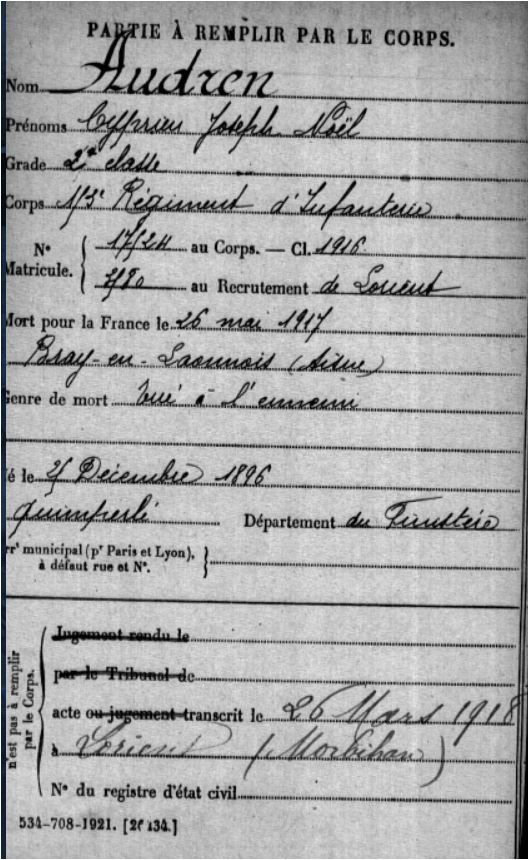 PARTIE À REMPLIR PAR LE CORPS.
Nom Audren
Prénoms Cyprien Joseph Noël
Grade 2e classe
Corps Régiment d'Infanterie
N° Matricule. au Corps. — Cl. 1916
au Recrutement de Lorient
Mort pour la France le 26 mai 1917
Bray-en-Laonnois (Aisne)
Genre de mort tué à l'ennemi
é le Décembre 1896
Quimperlé Département du Finistère
rrt municipal (pr Paris et Lyon),
à défaut rue et N°.
n'est pas à remplir
par le Corps.
Jugement rendu le
par le Tribunal de
acte ou jugement transcrit le 26 Mars 1918
à Lorient (Morbihan)
N° du registre d'état civil
534-708-1921. [26134.]